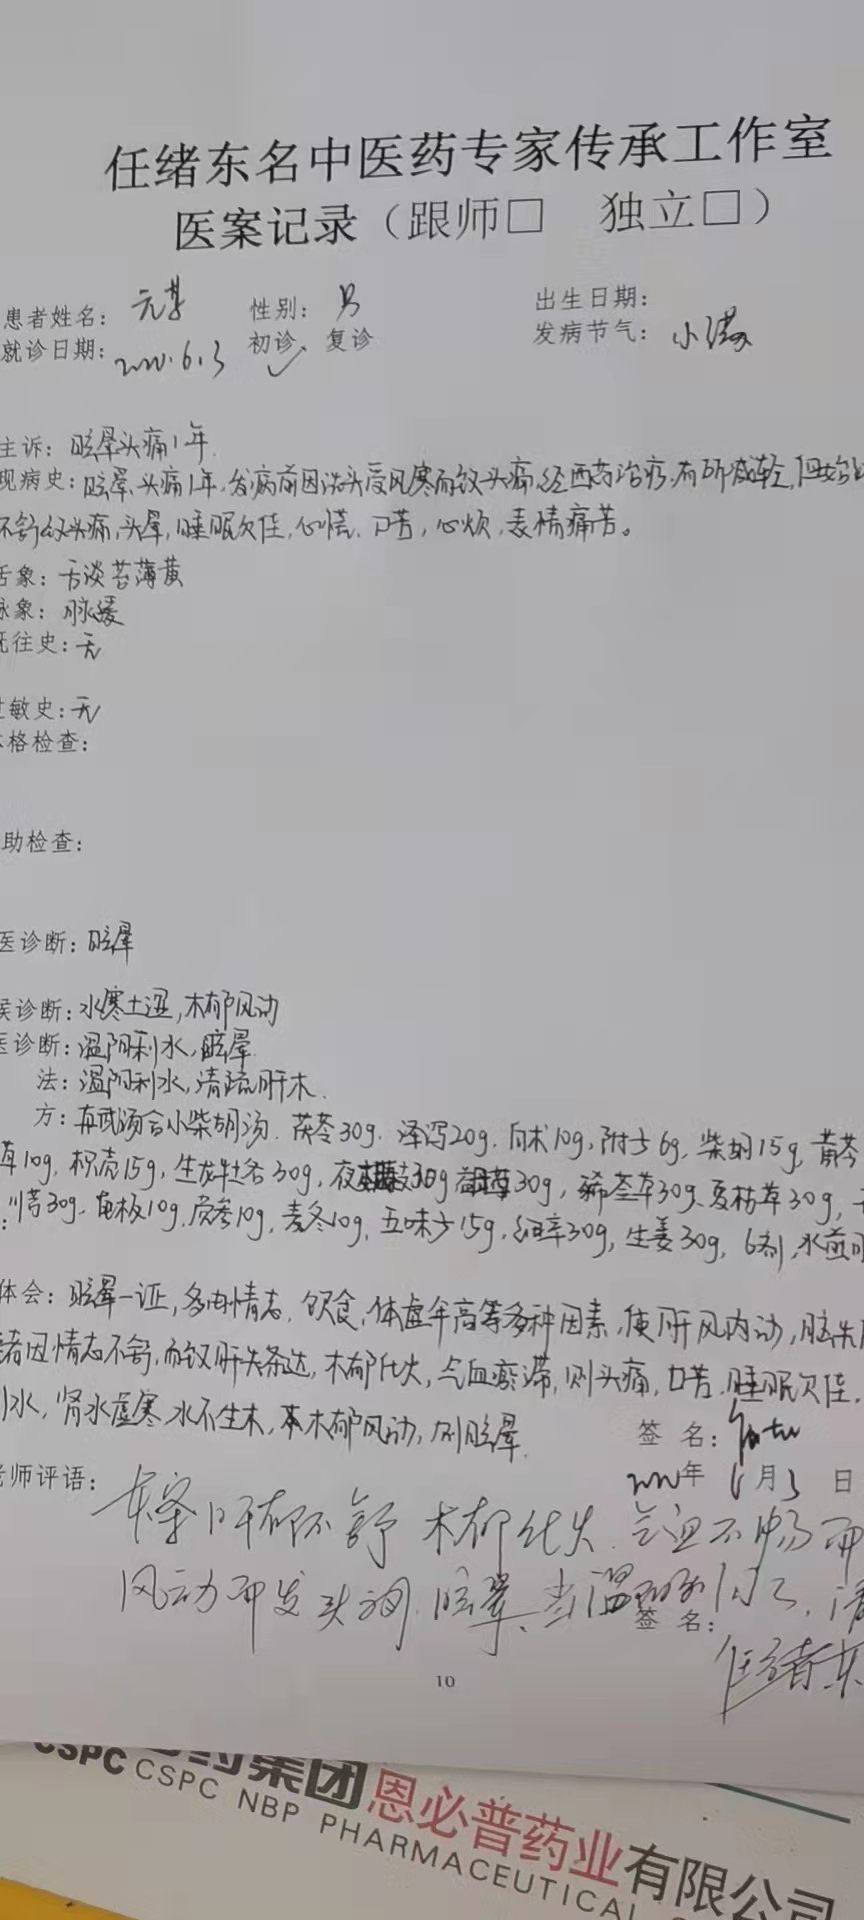 任绪东名中医药专家传承工作室
医案记录（跟师□ 独立□）
患者姓名： 元某 性别： 男 出生日期：
就诊日期： 2022.6.3 初诊、复诊 发病节气： 小满
主诉：眩晕头痛1年.
现病史：眩晕、头痛1年，发病前因洗头受风寒而致头痛，经西药治疗，有所减轻，但
不舒致头痛，头晕，睡眠欠佳，心慌，口苦，心烦，表情痛苦。
舌象：舌淡苔薄黄
脉象：脉缓
既往史：无
过敏史：无
格检查：
助检查：
医诊断：眩晕
候诊断：水寒土湿，木郁风动
医诊断：温阳利水，眩晕.
法：温阳利水，清疏肝木.
方：真武汤合小柴胡汤. 茯苓30g. 泽泻20g. 白术10g, 附子6g, 柴胡15g, 黄芩
草10g, 枳壳15g, 生龙牡各30g, 夜 30g 30g, 豨莶草30g、夏枯草30g,
30g. 龟板10g. 10g, 麦冬10g, 五味子15g, 细辛30g, 生姜30g, 6剂, 水煎服
体会：眩晕一证，多由情志、饮食、体虚年高等多种因素，使肝风内动，脑失
者因情志不舒，而致肝失条达，木郁化火，气血瘀滞，则头痛，口苦，睡眠欠佳，
利水，肾水虚寒，水不生木，木郁风动，则眩晕.
签 名：
2022年 6月3 日
老师评语：
本案肝郁不舒 木郁化火. 气血不畅而
风动而发头痛. 眩晕、当温阳利水，清
签 名：
任绪东
10
药集团恩必普药业有限公司
CSPC CSPC NBP PHARMACEUTICAL